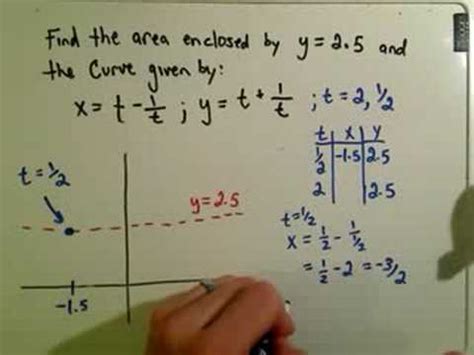 Find the area enclosed by y = 2.5 and
the Curve given by:
x = t - 1/t ; y = t + 1/t ; t = 2, 1/2
t | x | y
1/2 | -1.5 | 2.5
2 | | 2.5
t = 1/2
y = 2.5
-1.5
t = 1/2
x = 1/2 - 1/(1/2)
= 1/2 - 2 = -3/2